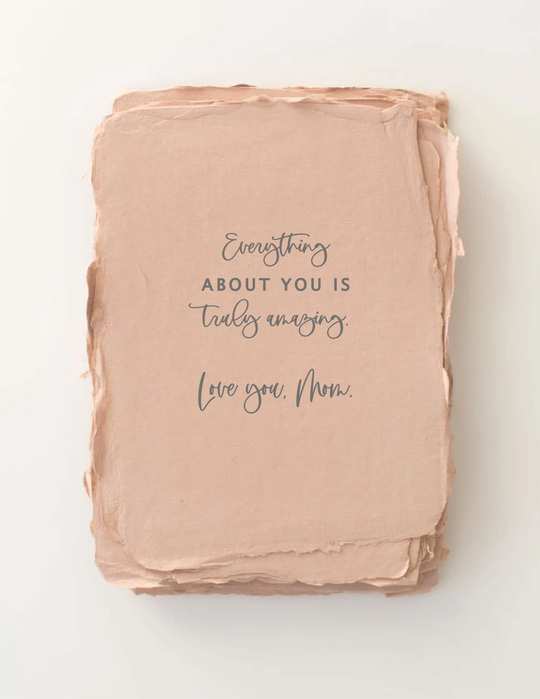 Everything
ABOUT YOU IS
truly amazing.
Love you, Mom.